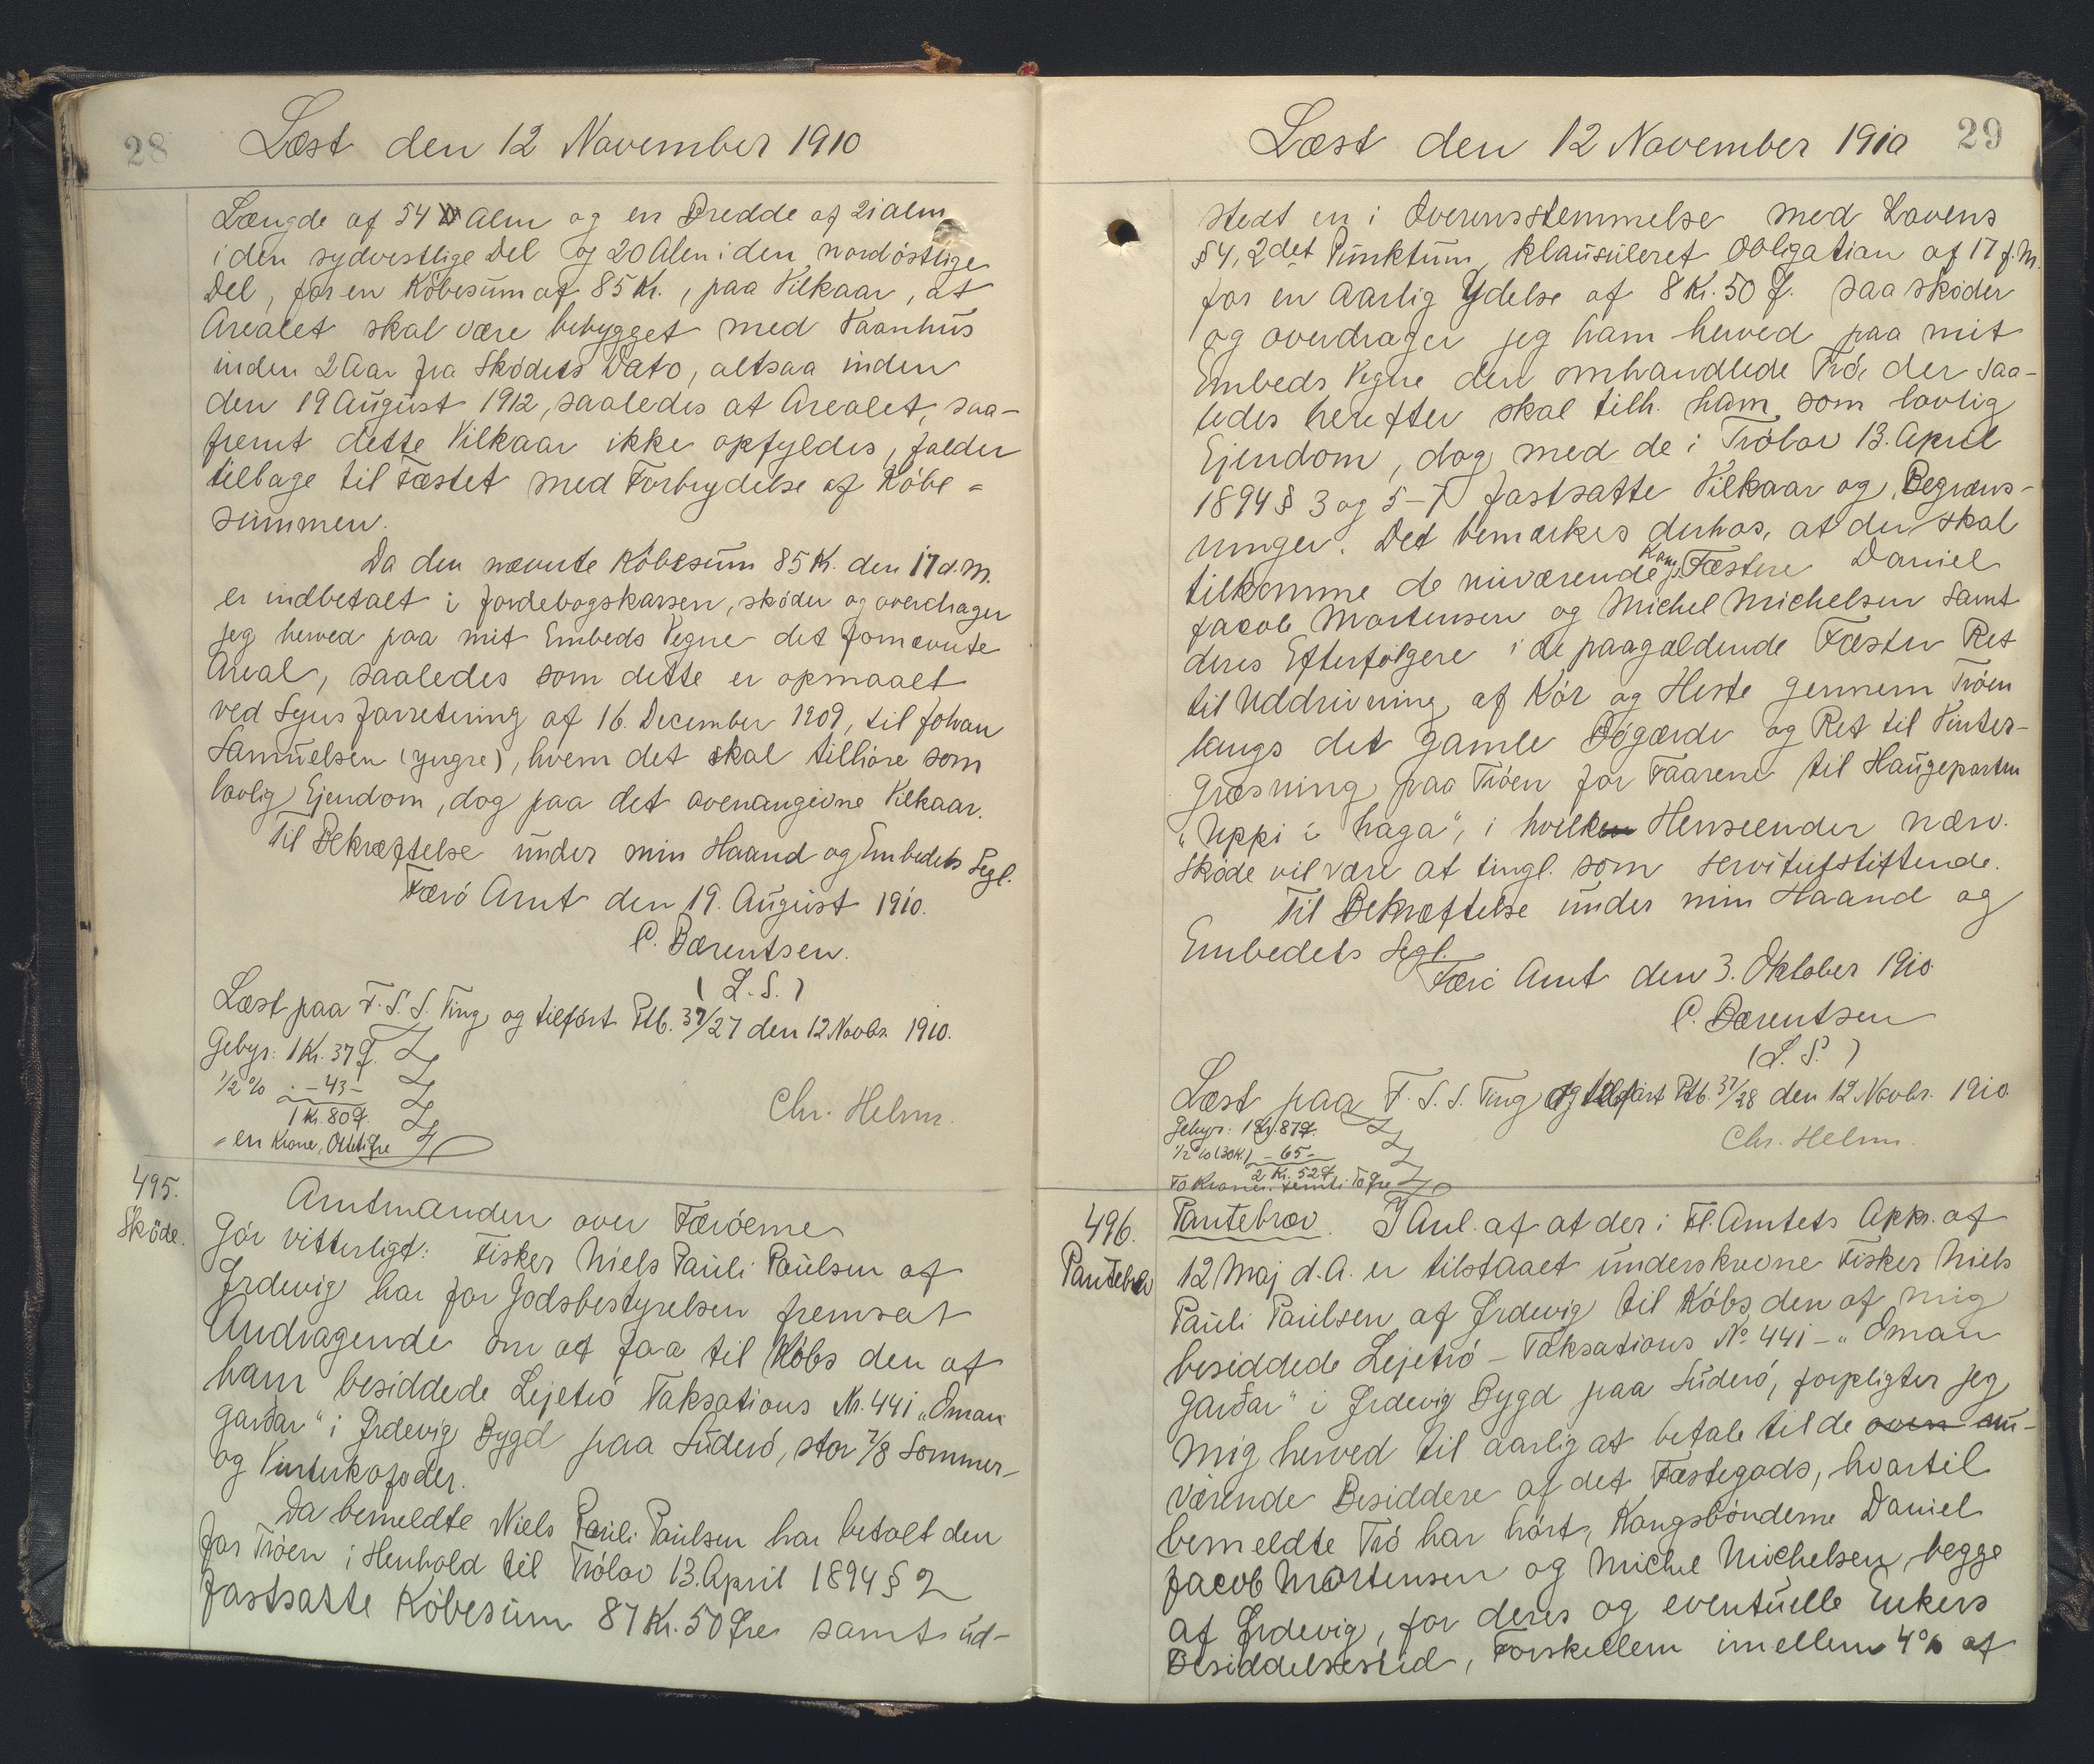 28
Læst den 12 November 1910
Længde af 54 Alm og en Bredde af 21 Alm
i den sydvestlige Del og 20 Alen i den nordöstlige
Del, for en Köbesum af 85 Kr., paa Vilkaar, at
Arealet skal være bebygget med Vaanhus
inden 2 Aar fra Sködets Dato, altsaa inden
den 19 August 1912, saaledes at Arealet, saa-
fremt dette Vilkaar ikke opfyldes, falder
tilbage til Fæstet med Forbrydelse af Köbe-
summen.
Da den nævnte Köbesum 85 Kr. den 17 d.M.
er indbetalt i Jordebogskassen, sköder og overdrager
jeg herved paa mit Embeds Vegne det fornævnte
Areal, saaledes som dette er opmaalt
ved Synsforretning af 16. December 1909, til Johan
Samuelsen (yngre), hvem det skal tilhöre som
lovlig Ejendom, dog paa det ovenangivne Vilkaar.
Til Bekræftelse under min Haand og Embedets Segl.
Færö Amt den 19. August 1910.
C. Bærentsen.
(L.S.)
Læst paa F.S.S. Ting og tilfört Ptb. 37/27 den 12 Novbr. 1910.
Gebyr: 1 Kr. 37 Ø.
1/2 % . - 43 -
1 Kr. 80 Ø.
= en Krone, Otteti Øre
Chr. Helms.
495.
Sköde.
Amtmanden over Færöerne
Gör vitterligt: Fisker Niels Pauli Paulsen af
Ørdevig har for Jodsbestyrelsen fremsat
Andragende om at faa til Köbs den af
ham besiddede Lejetrö Taksations Nr. 441 "Oman
garðar" i Ørdevig Bygd paa Suderö, stor 7/8 Sommer-
og Vinterkofoder.
Da bemeldte Niels Pauli Paulsen har betalt den
for Tröen i Henhold til Trölov 13. April 1894 § 2
fastsatte Köbesum 87 Kr. 50 Øre samt ud-
29
Læst den 12 November 1910
stedt en i Overensstemmelse med Lovens
§ 4, 2det Punktum, klausuleret Obligation af 17 f.M.
for en aarlig Ydelse af 8 Kr. 50 Ø. saa sköder
og overdrager jeg ham herved paa mit
Embeds Vegne den omhandlede Trö, der saa-
ledes herefter skal tilh. ham som lovlig
Ejendom, dog med de i Trölov 13. April
1894 § 3 og 5-7 fastsatte Vilkaar og Begræns-
ninger. Det bemærkes derhos, at der skal
tilkomme de nuværende Kongs Fæstere Daniel
Jacob Mortensen og Michel Michelsen samt
deres Efterfölgere i de paagældende Fæster Ret
til Uddrivning af Kör og Heste gennem Tröen
langs det gamle Bögærde og Ret til Vinter-
græsning paa Tröen for Faarene til Haugeparten
"Uppi i haga", i hvilken Henseender nærv.
Sköde vil være at tingl. som servitutstiftende.
Til Bekræftelse under min Haand og
Embedets Segl.
Færö Amt den 3. Oktober 1910.
C. Bærentsen
(L.S.)
Læst paa F.S.S. Ting og tilfört Ptb. 37/28 den 12 Novbr. 1910.
Gebyr: 1 Kr. 87 Ø.
1/2 % (130 Kr.) - 65 -
2 Kr. 52 Ø
To Kroner. femti To Øre
Chr. Helms.
496.
Pantebrev
Pantebrev. I Anl. af at der i Fl. Amtets Appr. af
12 Maj d.A. er tilstaaet underskrevne Fisker Niels
Pauli Paulsen af Ørdevig til Köbs den af mig
besiddede Lejetrö - Taksations No 441 - "Oman
garðar" i Ørdevig Bygd paa Suderö, forpligter jeg
mig herved til aarlig at betale til de oven nu-
værende Besiddere af det Fæstegods, hvortil
bemeldte Trö har hört, Kongsbönderne Daniel
Jacob Mortensen og Michel Michelsen, begge
af Ørdevig, for deres og eventuelle Enkers
Besiddelsestid, Forskellem imellem 4% af